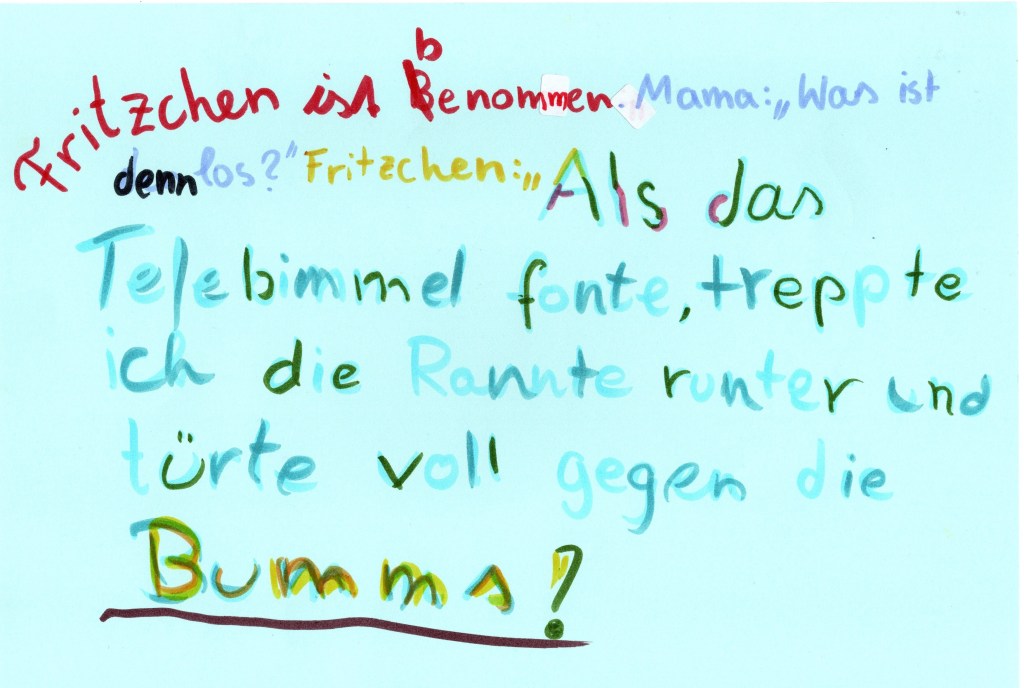 Fritzchen ist benommen. Mama: „Was ist
denn los?" Fritzchen: „Als das
Telebimmel fonte, treppte
ich die Rannte runter und
türte voll gegen die
Bumms!